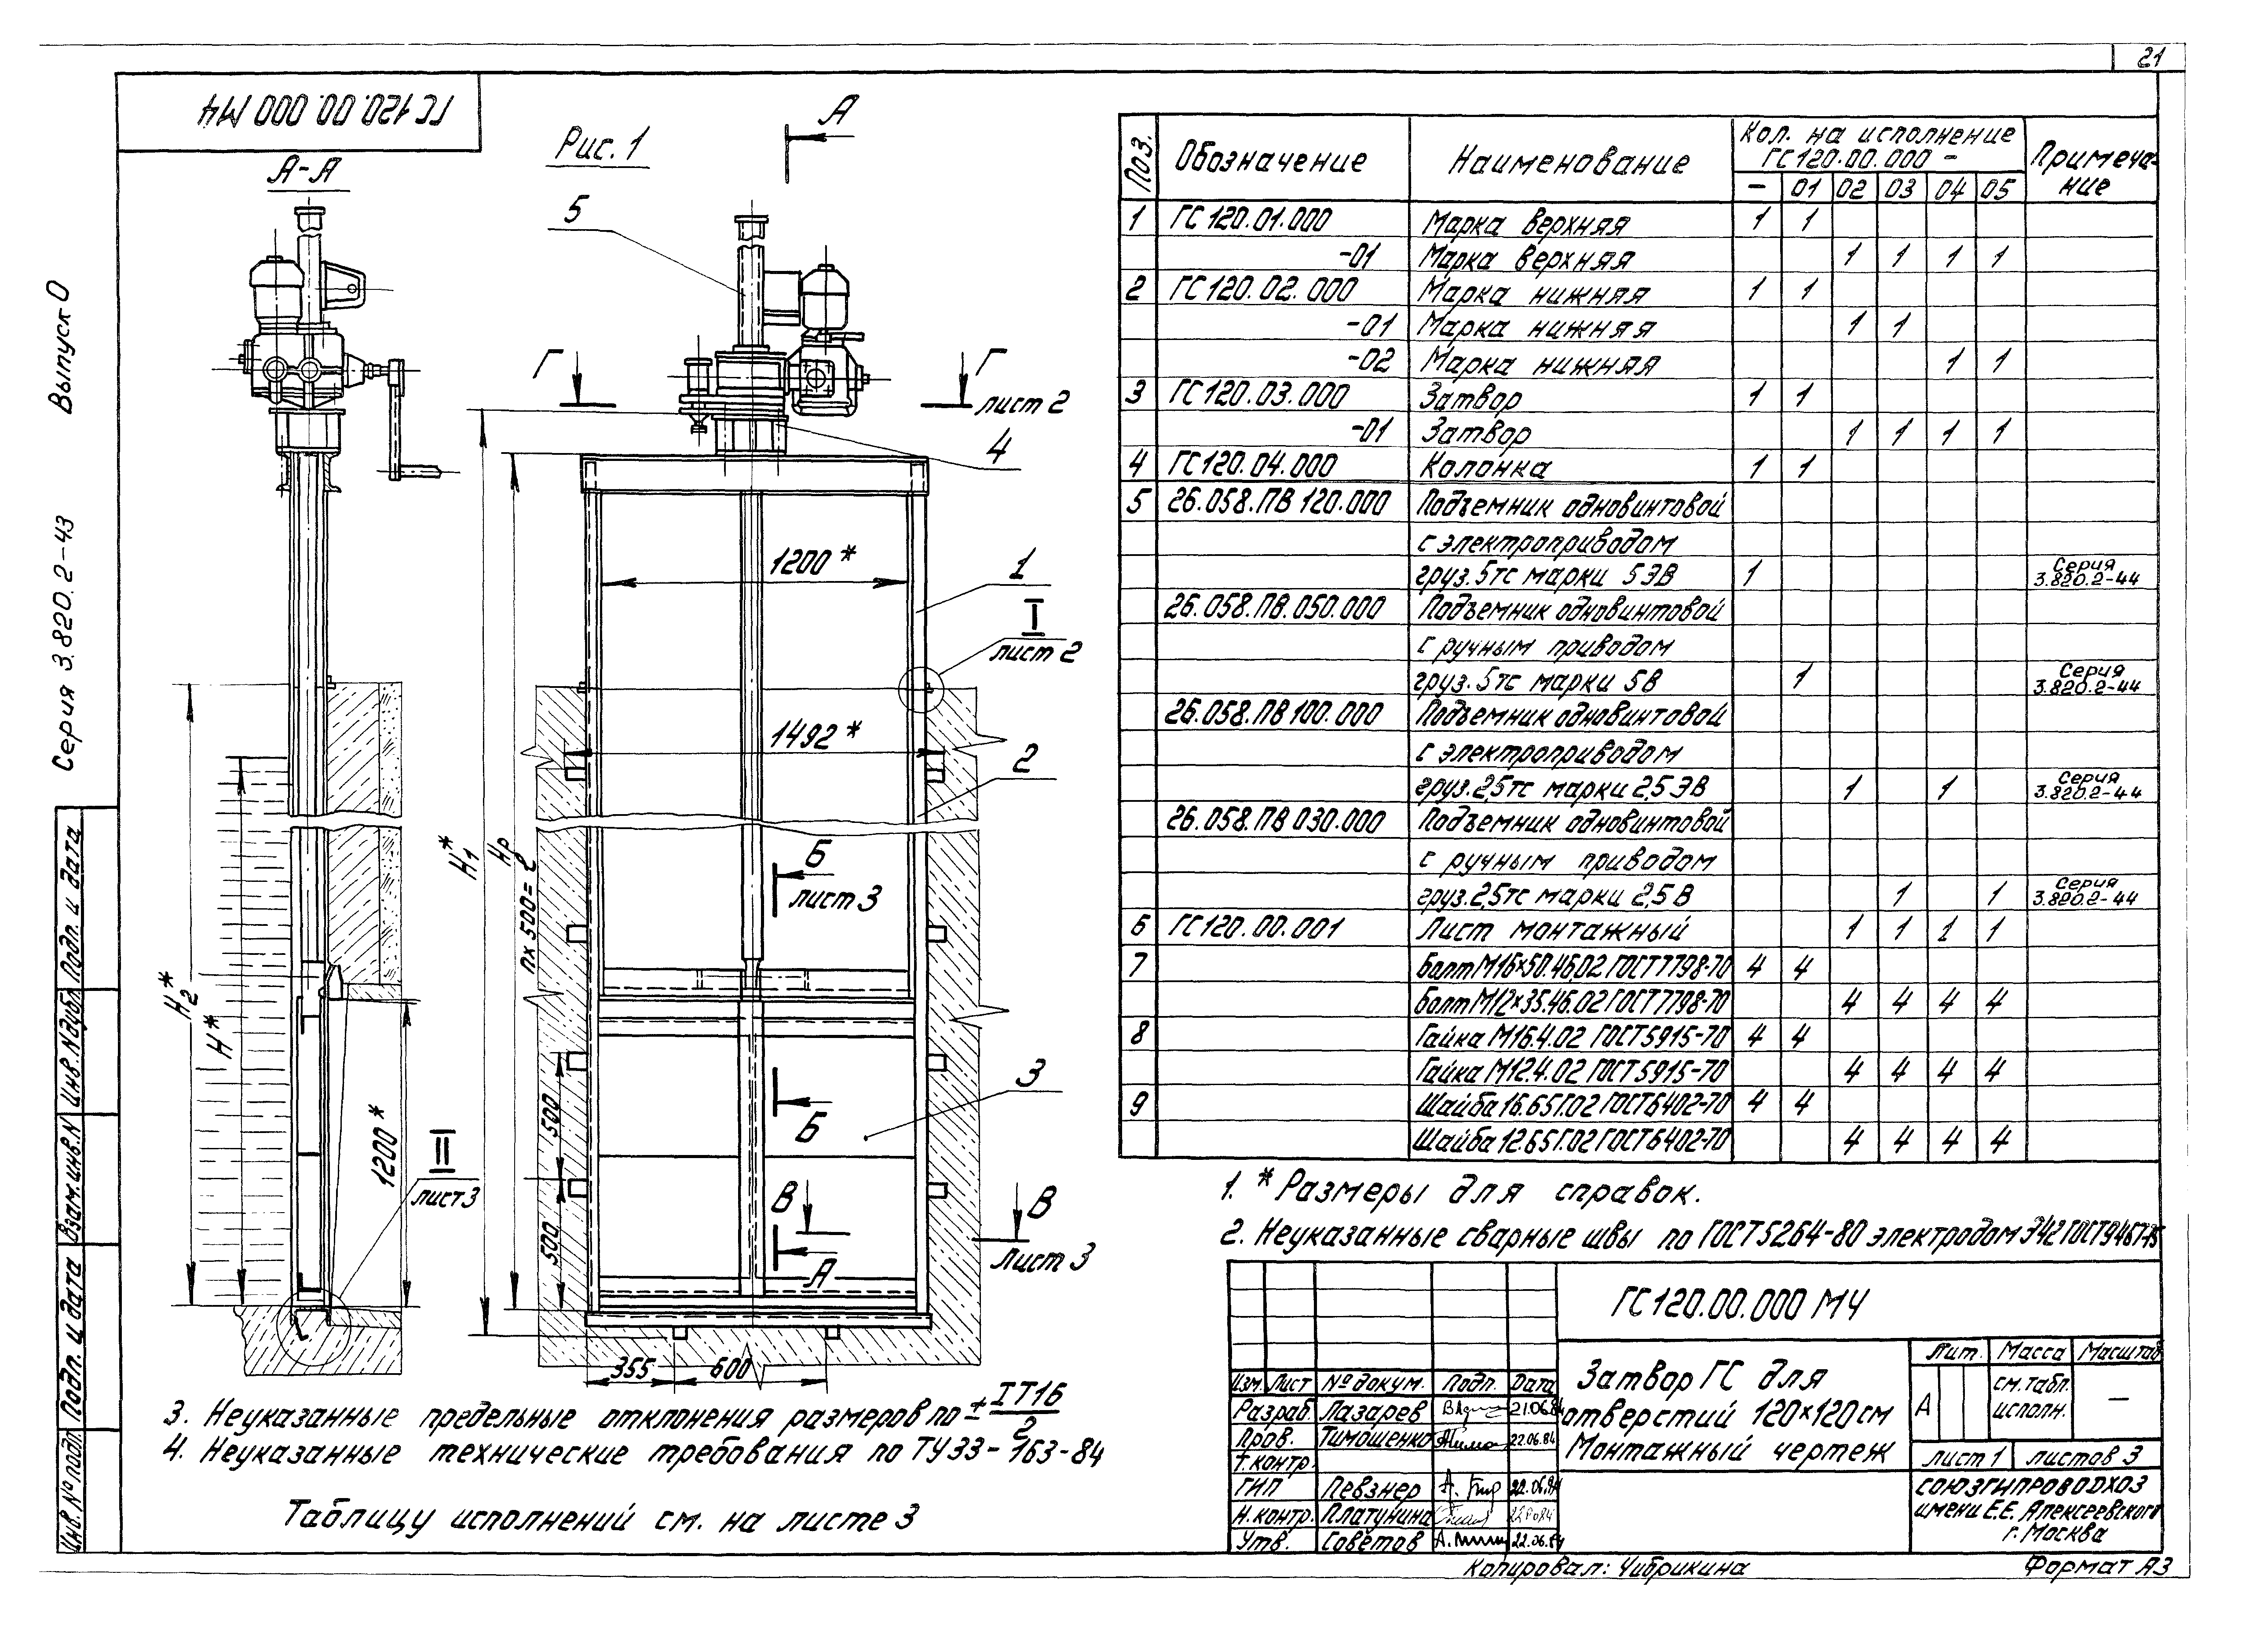 21
ГС 120.00.000 МЧ
Выпуск 0
Серия 3.820.2-43
А-А
Рис. 1
А
5
Г
Г
лист 2
4
1200*
1
I
лист 2
1492*
2
H1*
Hр
n×500=ℓ
Б
лист 3
H2*
H*
500
3
Б
1200*
II
лист 3
500
В
В
лист 3
А
355
600
Поз.
Обозначение
Наименование
Кол. на исполнение
ГС120.00.000 -
Примеча-
ние
- 01 02 03 04 05
1 ГС 120.01.000 Марка верхняя 1 1
-01 Марка верхняя 1 1 1 1
2 ГС 120.02.000 Марка нижняя 1 1
-01 Марка нижняя 1 1
-02 Марка нижняя 1 1
3 ГС 120.03.000 Затвор 1 1
-01 Затвор 1 1 1 1
4 ГС120.04.000 Колонка 1 1
5 26.058.ПВ 120.000 Подъемник одновинтовой
с электроприводом
груз. 5тс марки 5ЭВ 1 Серия 3.820.2-44
26.058.ПВ.050.000 Подъемник одновинтовой
с ручным приводом
груз. 5тс марки 5В 1 Серия 3.820.2-44
26.058.ПВ 100.000 Подъемник одновинтовой
с электроприводом
груз. 2,5тс марки 2,5ЭВ 1 1 Серия 3.820.2-44
26.058.ПВ 030.000 Подъемник одновинтовой
с ручным приводом
груз. 2,5тс марки 2,5В 1 1 Серия 3.820.2-44
6 ГС120.00.001 Лист монтажный 1 1 1 1
7 Болт М16×50.46.02 ГОСТ7798-70 4 4
Болт М12×35.46.02 ГОСТ7798-70 4 4 4 4
8 Гайка М16.4.02 ГОСТ5915-70 4 4
Гайка М12.4.02 ГОСТ5915-70 4 4 4 4
9 Шайба 16.65Г.02 ГОСТ6402-70 4 4
Шайба 12.65Г.02 ГОСТ6402-70 4 4 4 4
1. * Размеры для справок.
2. Неуказанные сварные швы по ГОСТ5264-80 электродом Э42 ГОСТ9467-75
3. Неуказанные предельные отклонения размеров по ± IT16/2
4. Неуказанные технические требования по ТУ33-163-84
Таблицу исполнений см. на листе 3
Инв. № подл.
Подп. и дата
Взам. инв. N
Инв. N дубл.
Подп. и дата
ГС120.00.000 МЧ
Изм. Лист № докум. Подп. Дата
Разраб. Лазарев 21.06.84
Пров. Тимошенко 22.06.84
Т. контр.
ГИП Певзнер 22.06.84
Н. контр. Платунина
Утв. Советов 22.06.84
Затвор ГС для
отверстий 120×120см
Монтажный чертеж
Лит. Масса Масштаб
А
см. табл.
исполн.
—
лист 1 листов 3
СОЮЗГИПРОВОДХОЗ
имени Е.Е. Алексеевского
г. Москва
Копировал: Чибрикина
Формат А3